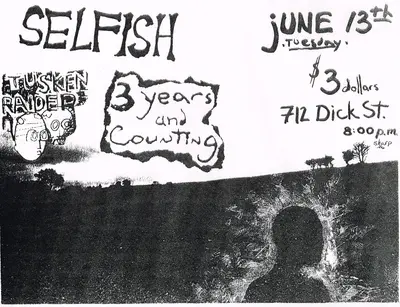 SELFISH
JUNE 13th
.TUESDAY.
$3 dollars
712 Dick St.
8:00 p.m.
sharp
TUSKEN
RAIDER
3 years
and
COUNTING